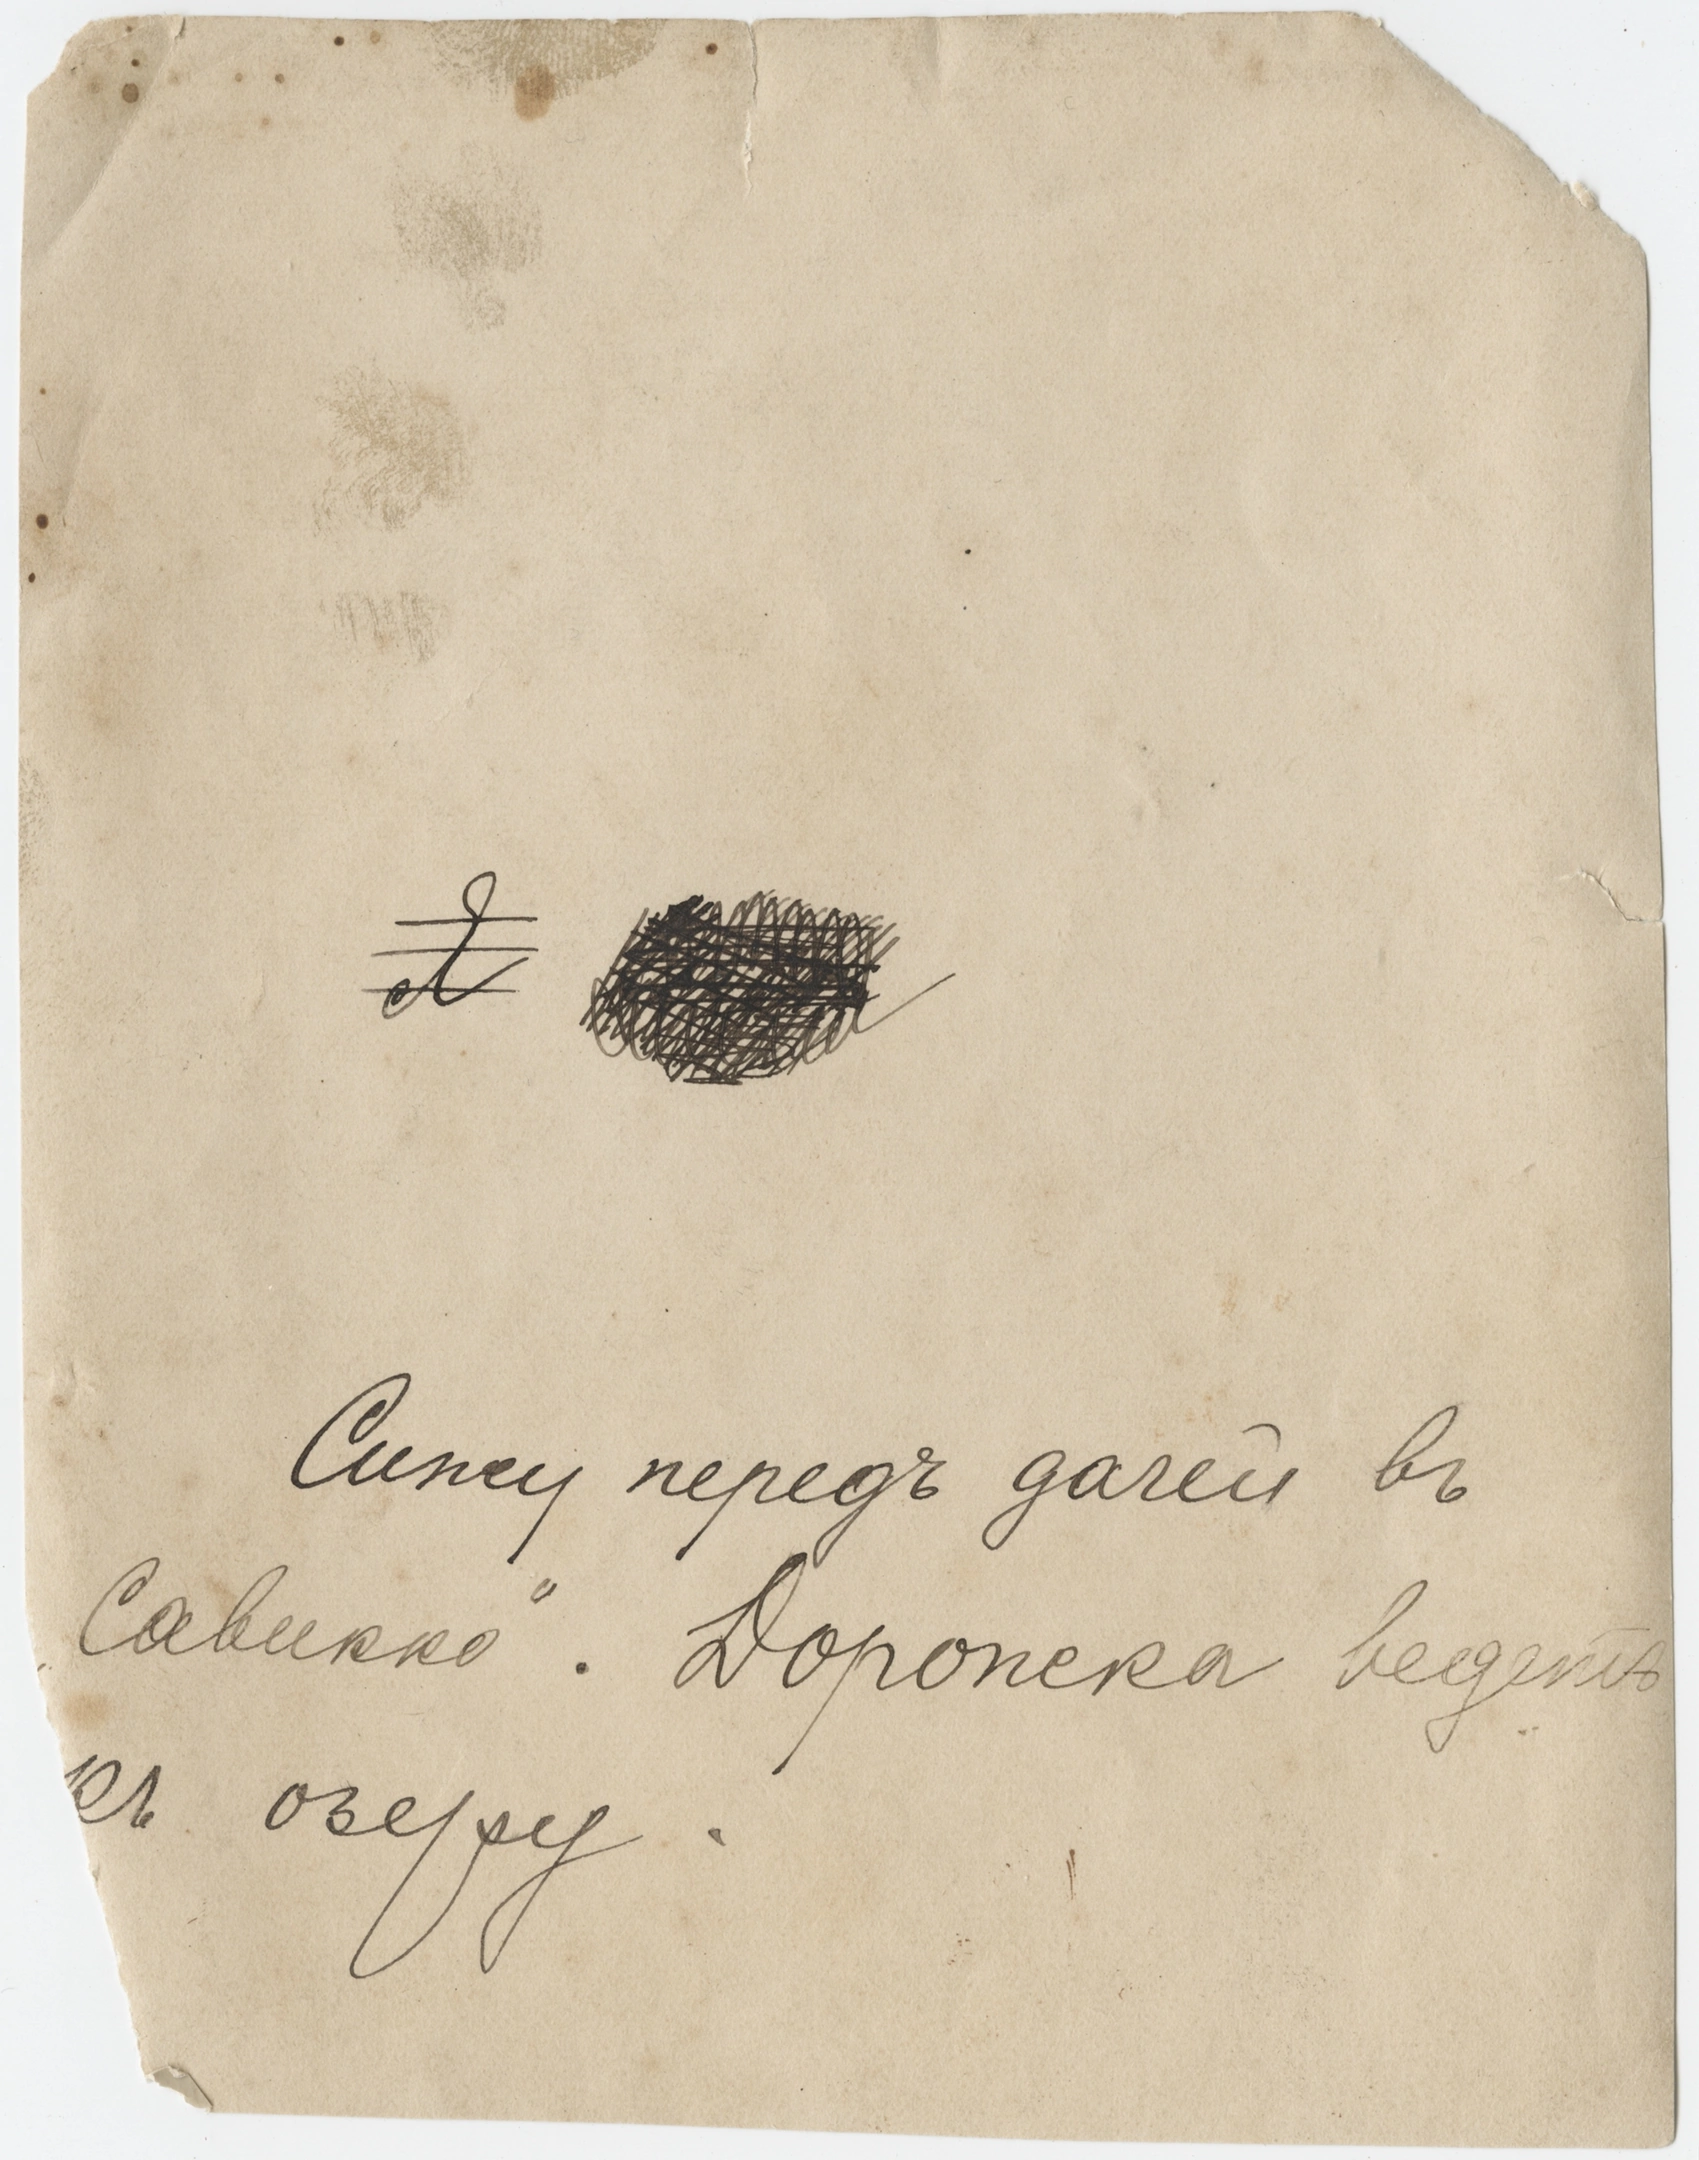 Сижу передъ дачей въ
„Савикко“. Дорожка ведетъ
къ озеру.